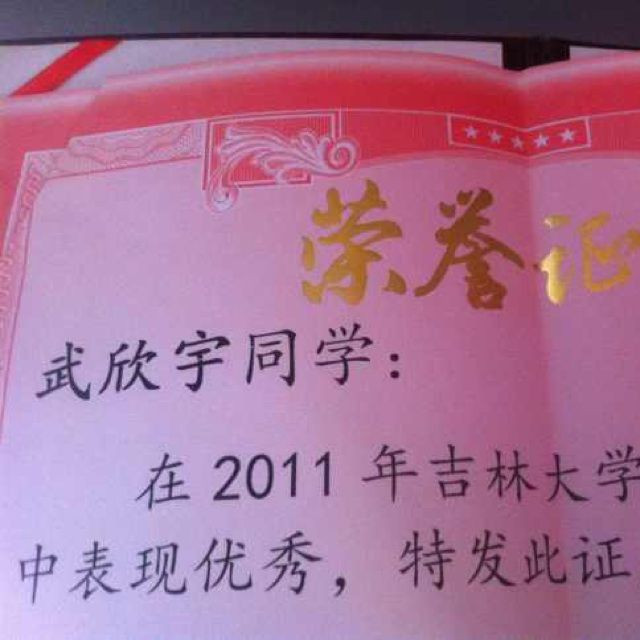 荣誉证
武欣宇同学：
在2011年吉林大学
中表现优秀，特发此证